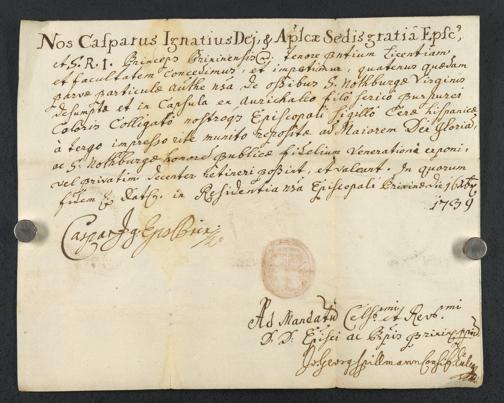 Nos Casparus Ignatius Dei, & Aplcæ Sedis gratiâ Epsc,
et S. R. I. Princeps Brixinensis &c. tenore pntium Licentiam,
et facultatem concedimus, et impertimur, quatenus quædam
parvæ particulæ de ossibus S. Nothburgæ Virginis
desumptæ et in Capsula ex aurichalco filo serico purpurei
Coloris Colligata nostroqs Episcopali sigillo Ceræ hispanicæ
à tergo impresso rite munito repositæ ad Maiorem Dei Gloriã,
ac S. Nothburgæ honorẽ publicæ fidelium Venerationi exponi,
vel privatim decenter retineri possint, et valeant. In quorum
fidem &c. Datũ in Residentia nra Episcopali Brixinæ die
1739
Caspar Ig Eps
Ad Mandatũ Celsmi et Revmi
D. D. Episci ac Ppis Brixin
Jo: Georg Spillmann